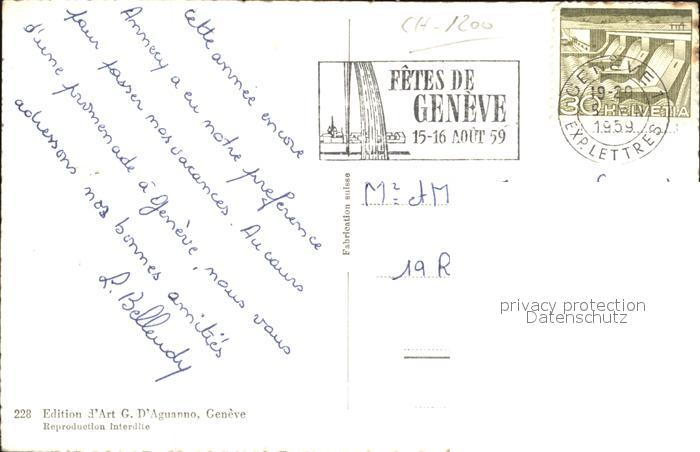 cette année encore
Annecy a eu notre préférence
pour passer nos vacances. Au cours
d'une promenade à Genève, nous vous
adressons nos bonnes amitiés
L. Bellendy
CH-1200
FÊTES DE
GENÈVE
15-16 AOÛT 59
GENÈVE 1
19-20
1959
EXP. LETTRES
30 HELVETIA
Fabrication suisse
Mr et M
19 R
privacy protection
Datenschutz
228 Edition d'Art G. D'Aguanno, Genève
Reproduction interdite